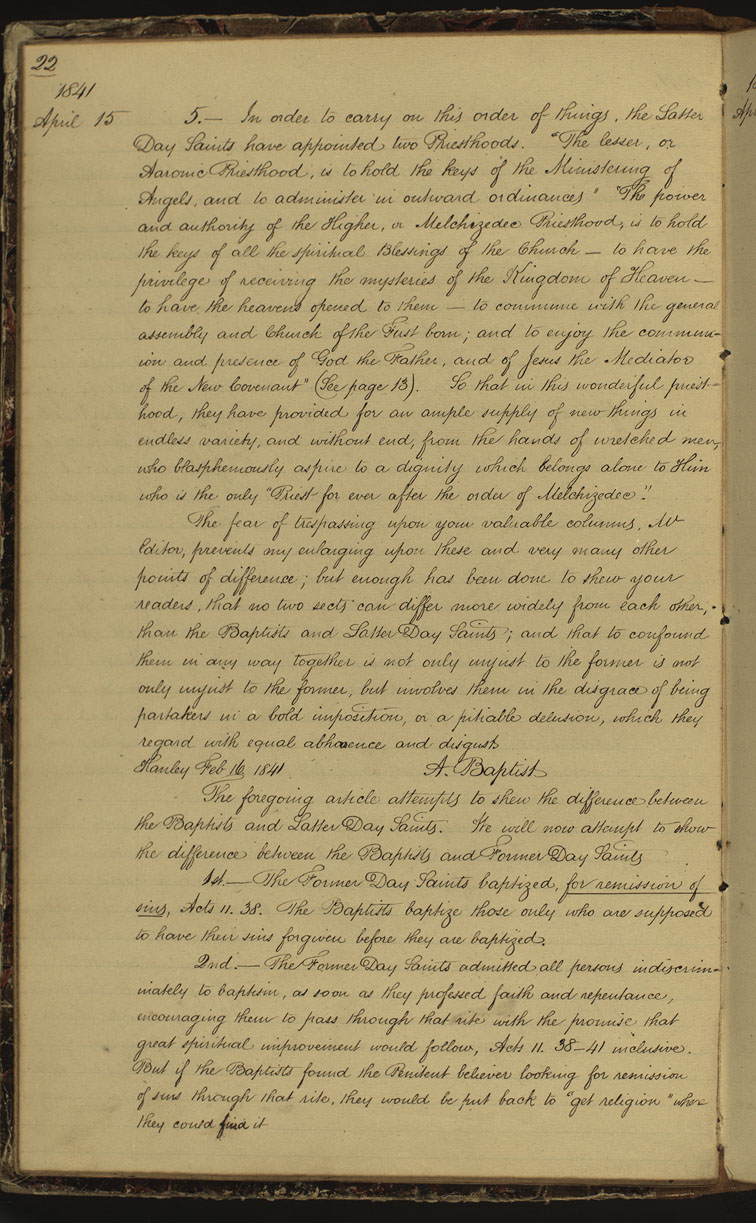 22
1841
April 15 5.— In order to carry on this order of things, the Latter
Day Saints have appointed two Priesthoods. "The lesser, or
Aaronic Priesthood, is to hold the keys of the Ministering of
Angels, and to administer in outward ordinances" "The power
and authority of the Higher, or Melchizedec Priesthood, is to hold
the keys of all the spiritual Blessings of the Church — to have the
privilege of receiving the mysteries of the Kingdom of Heaven —
to have the heavens opened to them — to commune with the general
assembly and Church of the First born; and to enjoy the commun-
ion and presence of God the Father, and of Jesus the Mediator
of the New Covenant" (See page 13). So that in this wonderful priest-
hood, they have provided for an ample supply of new things in
endless variety, and without end, from the hands of wretched men,
who blasphemously aspire to a dignity which belongs alone to Him
who is the only "Priest for ever after the order of Melchizedec".
The fear of trespassing upon your valuable columns, Mr
Editor, prevents my enlarging upon these and very many other
points of difference; but enough has been done to shew your
readers, that no two sects can differ more widely from each other,
than the Baptists and Latter Day Saints; and that to confound
them in any way together is not only unjust to the former is not
only unjust to the former, but involves them in the disgrace of being
partakers in a bold imposition, or a pitiable delusion, which they
regard with equal abhorence and disgust
Hanley Feb 16, 1841 A. Baptist
The foregoing article attempts to shew the difference between
the Baptists and Latter Day Saints. We will now attempt to show
the difference between the Baptists and Former Day Saints
1st.— The Former Day Saints baptized, for remission of
sins, Acts 11. 38. The Baptists baptize those only who are supposed
to have their sins forgiven before they are baptized.
2nd.— The Former Day Saints admitted all persons indiscrim-
inately to baptism, as soon as they professed faith and repentance,
encouraging them to pass through that rite with the promise that
great spiritual improvement would follow, Acts 11. 38–41 inclusive.
But if the Baptists found the Penitent believer looking for remission
of sins through that rite, they would be put back to "get religion" where
they could find it